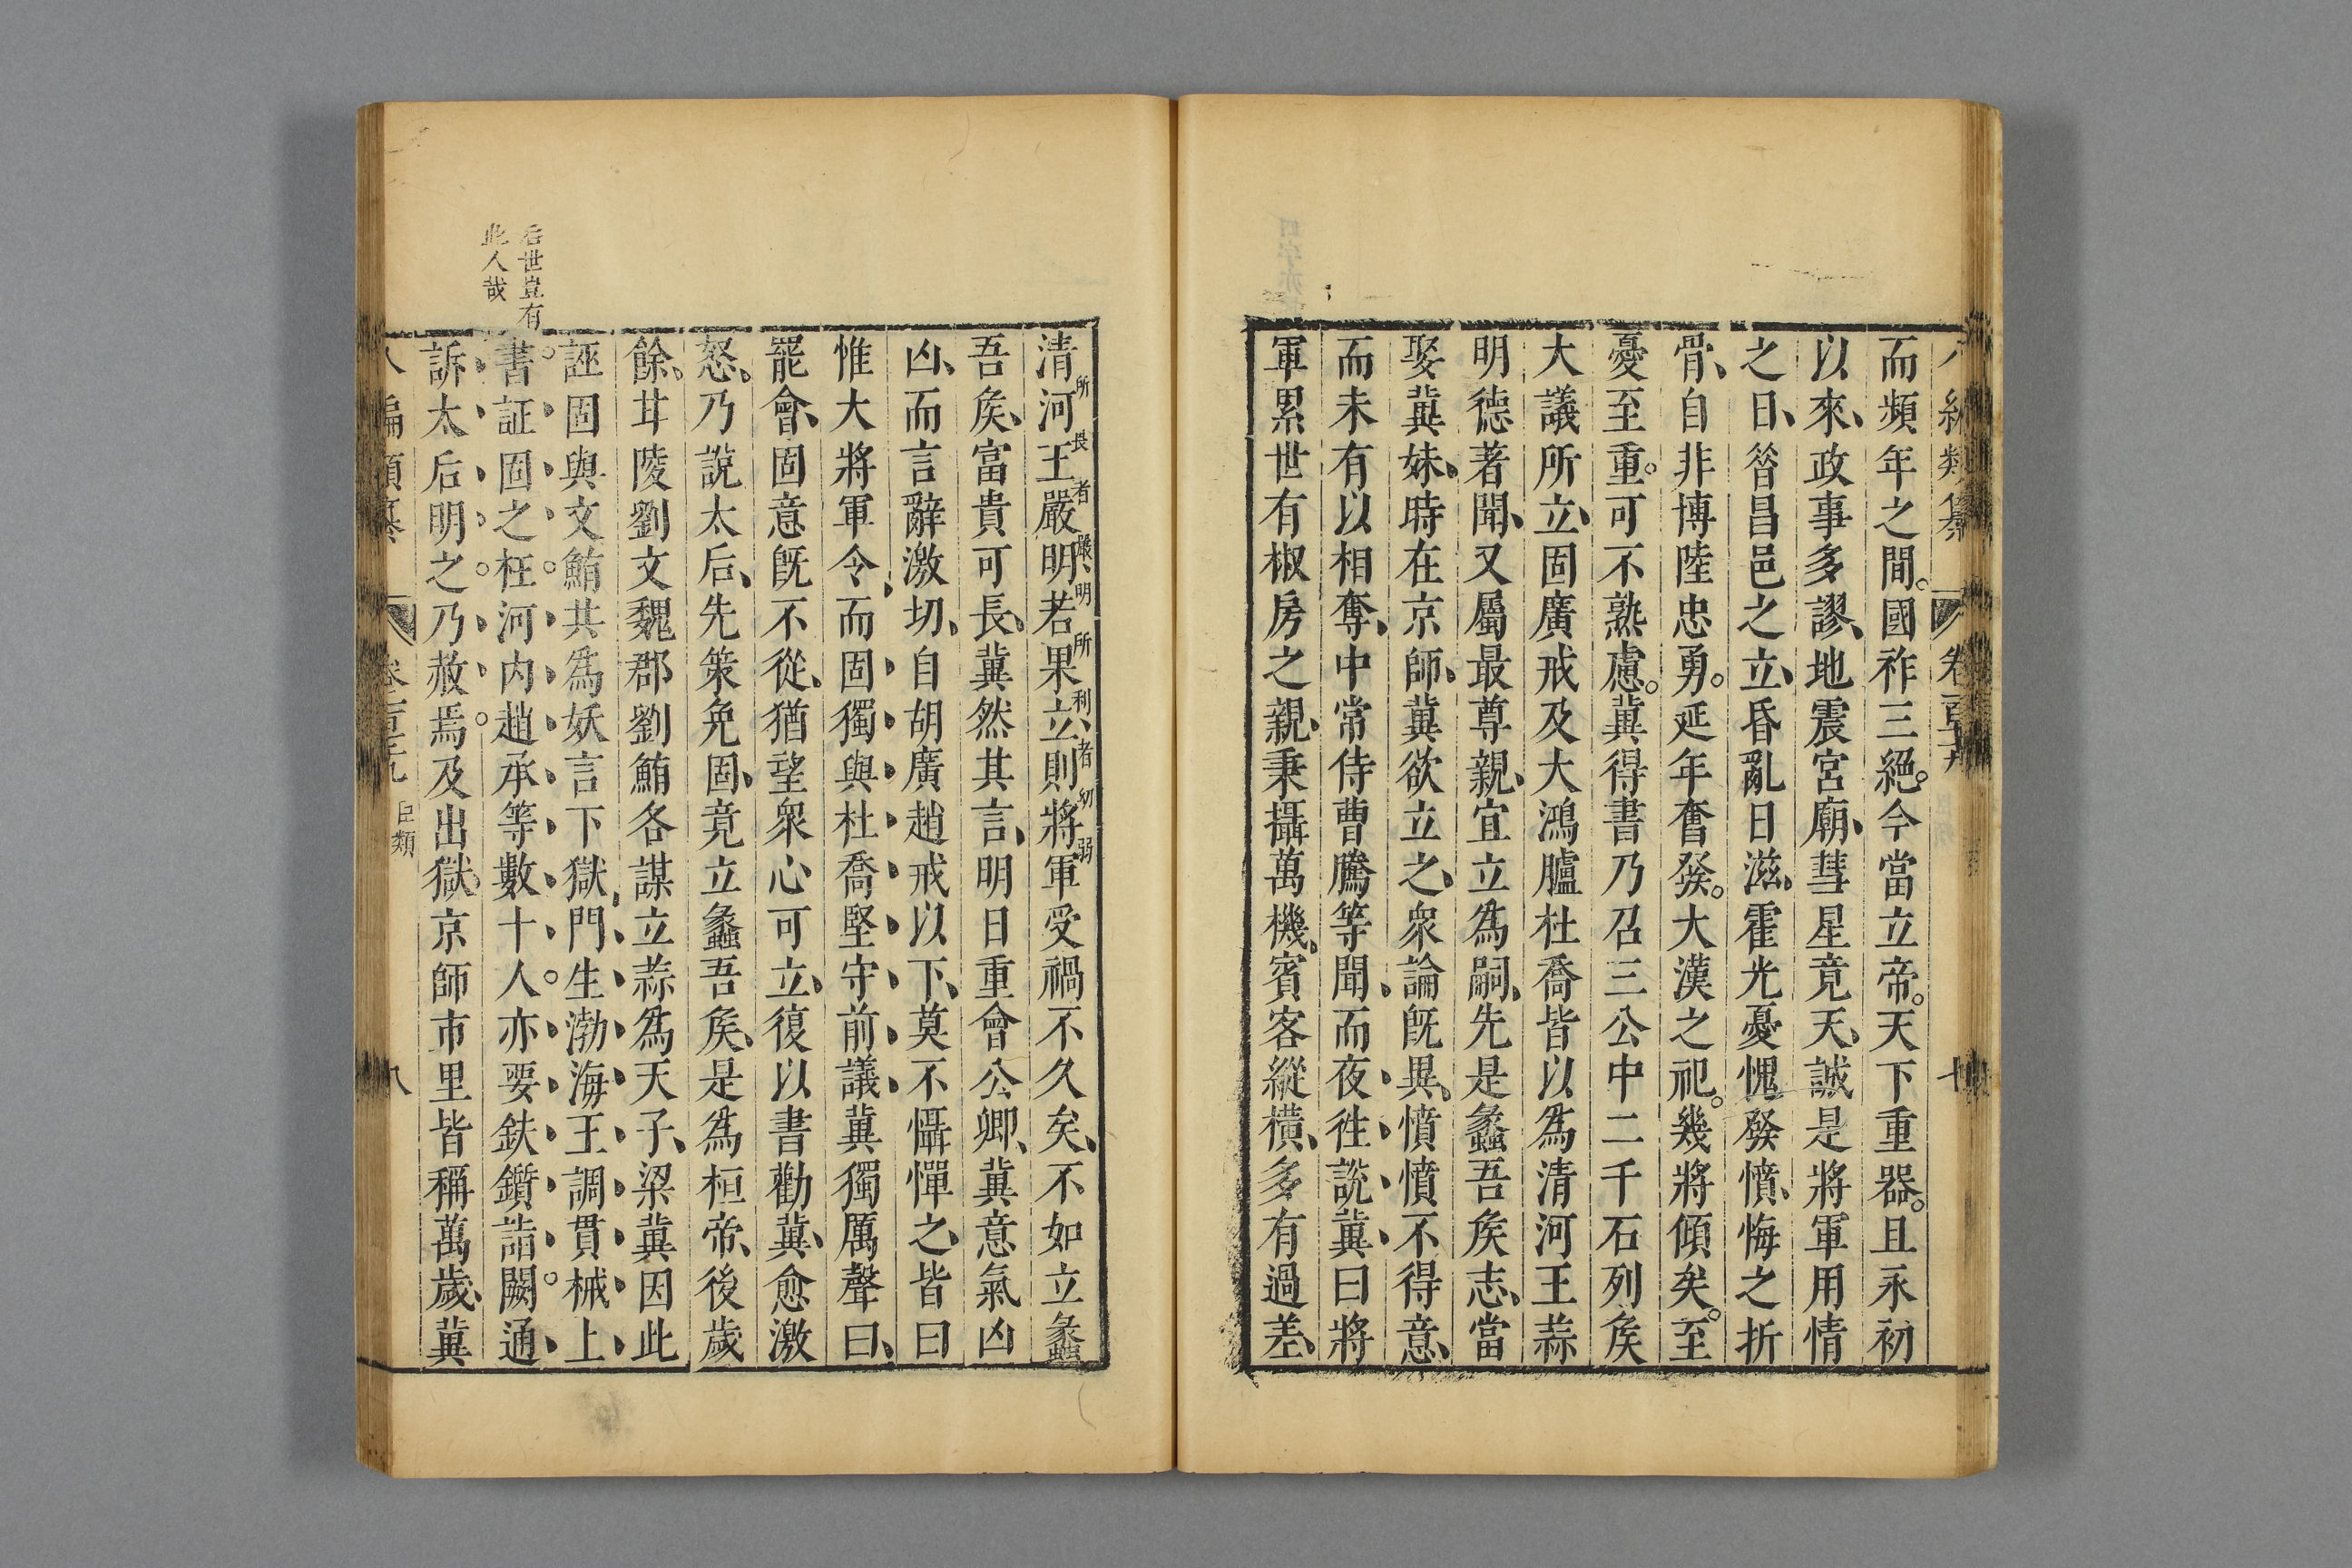 而頻年之間。國祚三絕。今當立帝。天下重器。且永初
以來、政事多謬、地震宮廟、彗星竟天、誠是將軍用情
之日、昝昌邑之立、昏亂日滋、霍光憂愧發憤、悔之折
骨、自非博陸忠勇。延年奮發。大漢之祀。幾將傾矣。至
憂至重。可不熟慮。冀得書乃召三公中二千石列矦
大議所立、固廣戒及大鴻臚杜喬皆以爲清河王蒜
明德著聞、又屬最尊親、宜立爲嗣、先是蠡吾矦志、當
娶冀妹、時在京師、冀欲立之、衆論旣異、憤憤不得意、
而未有以相奪、中常侍曹騰等聞、而夜徃說冀、曰將
軍累世有椒房之親、秉攝萬機、賓客縱橫、多有過差、
清河王嚴明、若果立、則將軍受禍不久矣、不如立蠡
所長者嚴明所利者幼弱
吾矦、富貴可長、冀然其言、明日重會公卿、冀意氣凶
凶、而言辭激切、自胡廣趙戒以下、莫不懾憚之、皆曰
惟大將軍令、而固獨與杜喬堅守前議、冀獨厲聲曰、
罷會、固意旣不從、猶望衆心可立、復以書勸冀、愈激
怒、乃說太后、先策免固、竟立蠡吾矦、是爲桓帝、後歲
餘、甘陵劉文魏郡劉鮪各謀立蒜爲天子、梁冀因此
誣固與文鮪共爲妖言下獄、門生渤海王調貫械上
書。証固之枉。河內趙承等數十人。亦要鈇鑕詣闕。通
后世豈有
此人哉
訴、太后明之。乃赦焉。及出獄、京師市里皆稱萬歲、冀
臣類
八